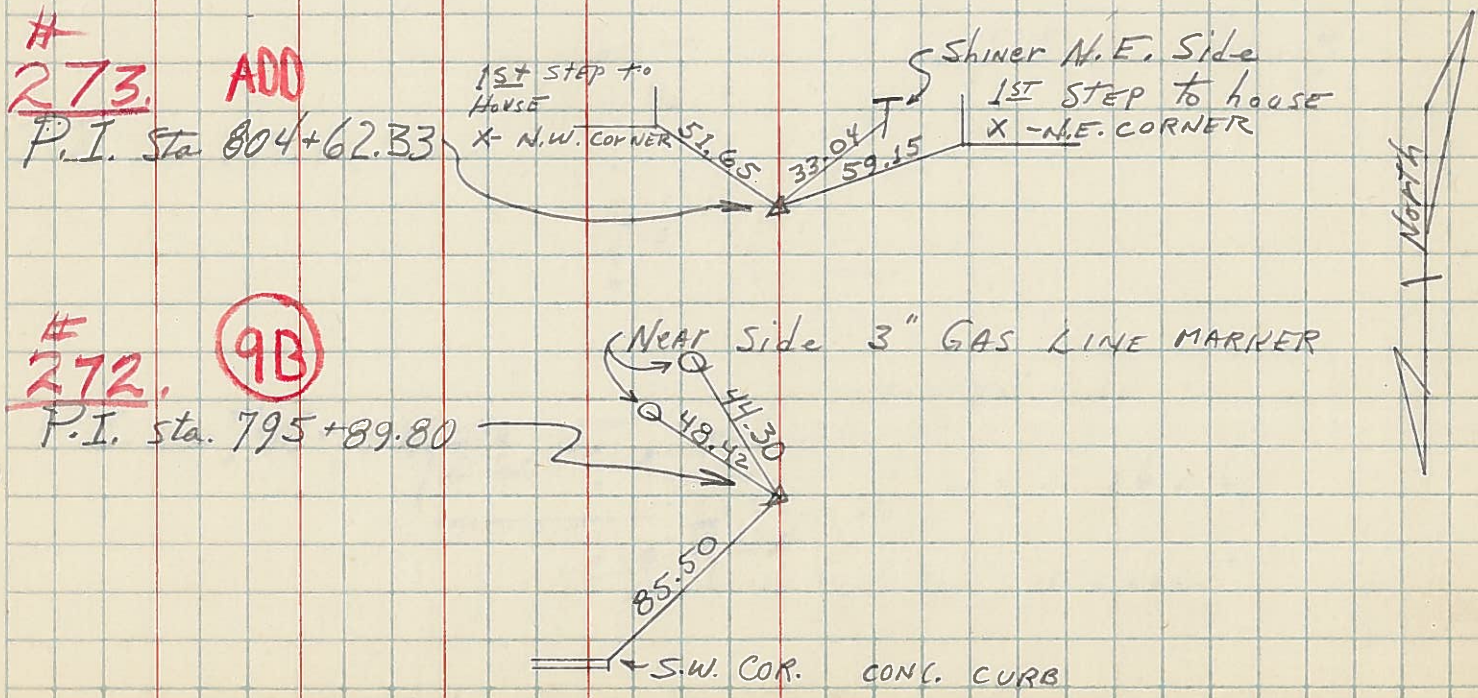 #
273. ADD
P.I. Sta 804+62.33
1st STEP to
HOUSE
X- N.W. CORNER
51.65
33.04
59.15
Shiner N.E. Side
1ST STEP to house
X -N.E. CORNER
North
#
272. 9B
P.I. sta. 795+89.80
Near Side 3" GAS LINE MARKER
44.30
48.42
85.50
S.W. COR. CONC. CURB